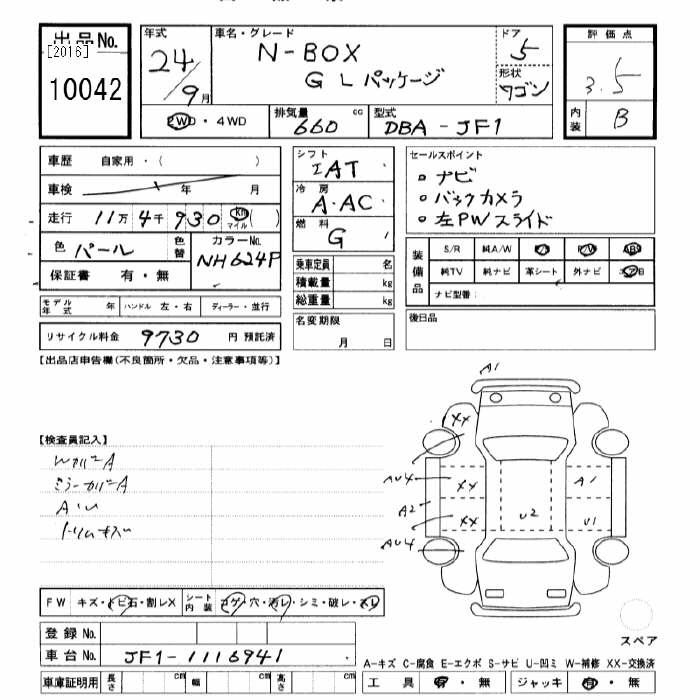 出品No.
[2016]
10042
年式
24/9月
車名・グレード
N-BOX
G Lパッケージ
ドア
5
形状
ワゴン
評価点
3.5
内装
B
2WD・4WD
排気量
660 cc
型式
DBA-JF1
車歴 自家用・( )
車検 年 月
走行 11万 4千 930 km マイル ( )
色 パール
色替
カラーNo.
NH624P
保証書 有・無
シフト
IAT
冷房
A・AC
燃料
G
乗車定員 名
積載量 kg
総重量 kg
名変期限
月 日
セールスポイント
ナビ
バックカメラ
左PWスライド
装備品
S/R 純A/W P/S P/W ABS
純TV 純ナビ 革シート 外ナビ エアB
ナビ型番:
後日品
モデル年式 年 ハンドル 左・右 ディーラー・並行
リサイクル料金 9730 円 預託済
【出品店申告欄(不良箇所・欠品・注意事項等)】
【検査員記入】
ミラーカバーA
A1
XX
AU4
XX
A2
XX
AU4
A1
U2
U1
FW キズ・トビ石・割レX
シート内装 コゲ・穴・汚レ・シミ・破レ・スレ
登録No.
車台No. JF1-1116941
車庫証明用 長さ cm 幅 cm 高さ cm
スペア
A-キズ C-腐食 E-エクボ S-サビ U-凹ミ W-補修 XX-交換済
工具 有・無 ジャッキ 有・無